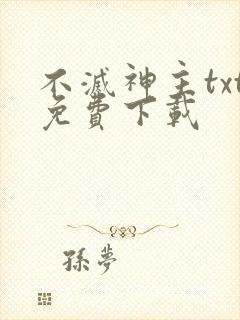 不滅神主txt
免費下載
孫夢